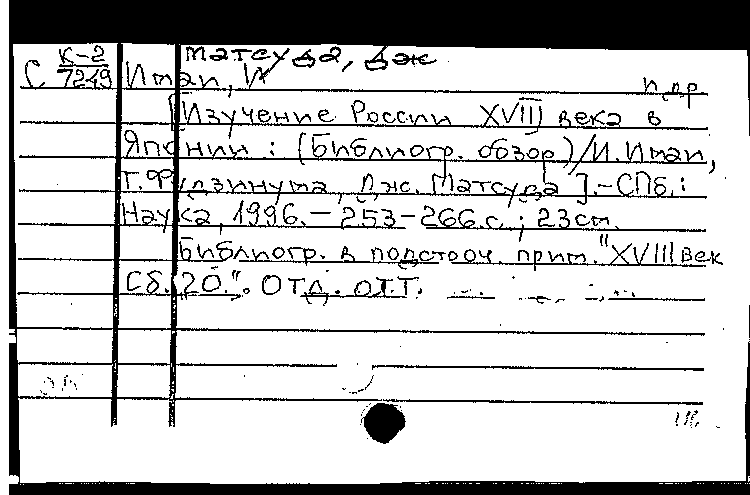 Матсуда, Дж
С К-2
7249 Имаи, И
и др
[Изучение России XVIII века в
Японии : (Библиогр. обзор) / И. Имаи,
Т. Фудзинума, Дж. Матсуда ]. - СПб. :
Наука, 1996. - 253-266 с. ; 23 см.
Библиогр. в подстроч. прим. "XVIII век
Сб. 20.". Отд. отт.